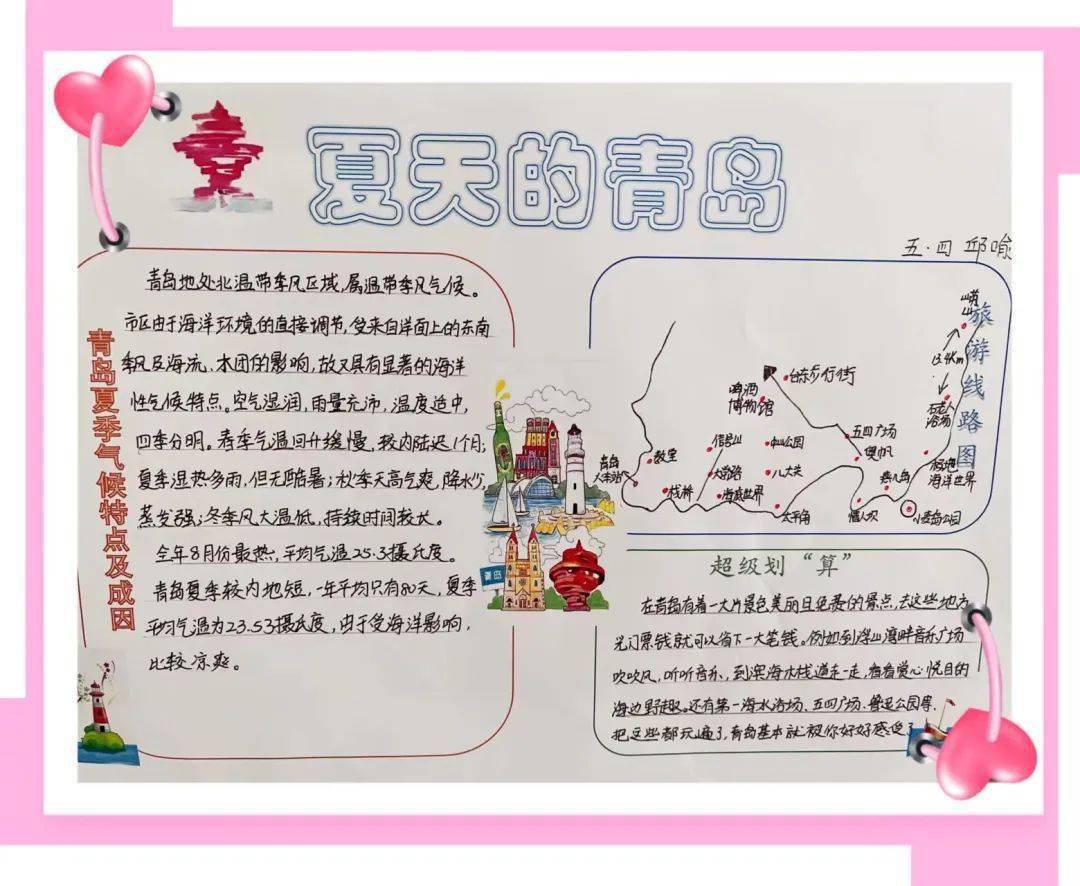 夏天的青岛
五·四 邱喻
青岛夏季气候特点及成因
青岛地处北温带季风区域,属温带季风气候。
市区由于海洋环境的直接调节,受来自洋面上的东南
季风及海流、水团的影响,故又具有显著的海洋
性气候特点。空气湿润,雨量充沛,温度适中,
四季分明。春季气温回升缓慢,较内陆迟1个月;
夏季湿热多雨,但无酷暑;秋季天高气爽,降水少,
蒸发强;冬季风大温低,持续时间较长。
全年8月份最热,平均气温25.3摄氏度。
青岛夏季较内地短,一年平均只有80天,夏季
平均气温为23.53摄氏度,由于受海洋影响,
比较凉爽。
青岛
旅游线路图
崂山
13.4Km
石老人
浴场
台东步行街
啤酒
博物馆
五四广场
奥帆
信号山
中山公园
教堂
青岛
火车站
大学路
八大关
栈桥
海底世界
太平角
燕儿岛
极地
海洋世界
情人坝
小麦岛公园
超级划“算”
在青岛有着一大片景色美丽且免费的景点,去这些地方
光门票钱就可以省下一大笔钱。例如到浮山湾畔音乐广场
吹吹风,听听音乐,到滨海木栈道走一走,看看赏心悦目的
海边野趣。还有第一海水浴场、五四广场、鲁迅公园等,
把这些都玩遍了,青岛基本就被你好好感受了